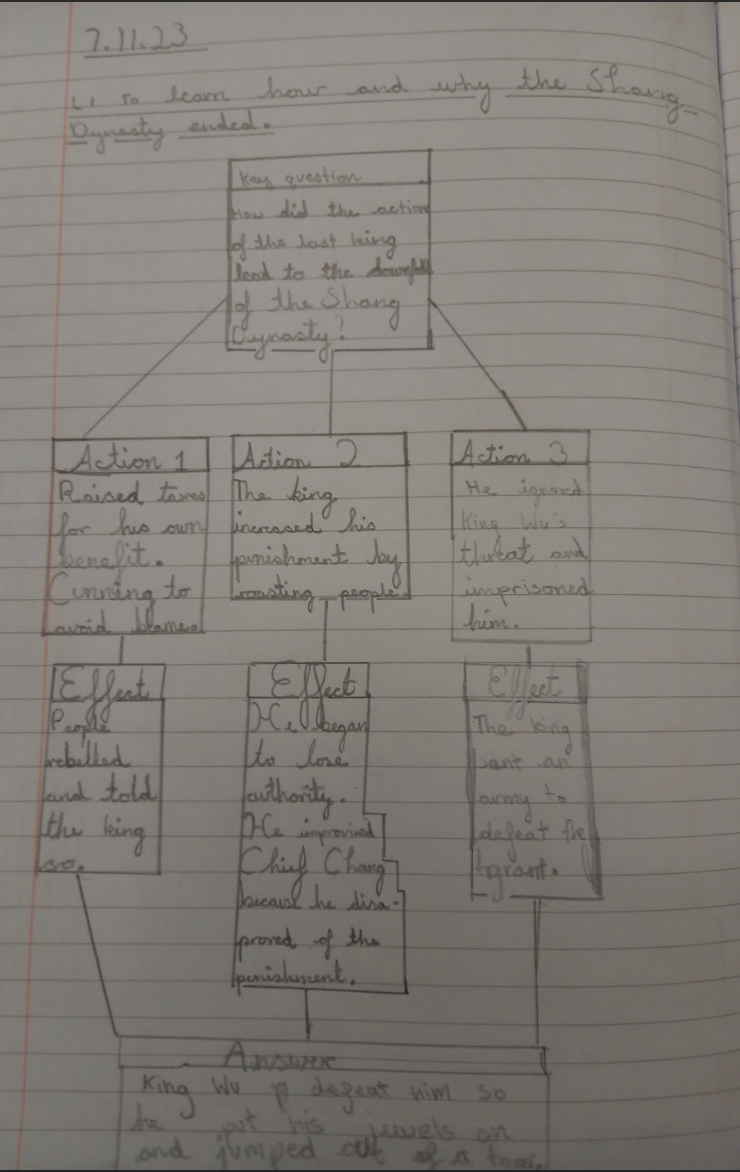 7.11.23
LI To learn how and why the Shang
Dynasty ended.
Key question
How did the action
of the last king
lead to the downfall
of the Shang
Dynasty?
Action 1
Raised taxes
for his own
benefit.
Cunning to
avoid blame.
Action 2
The king
increased his
punishment by
roasting people.
Action 3
He ignord
King Wu's
threat and
imprisoned
him.
Effect
People
rebelled
and told
the king
so.
Effect
He began
to lose
authority.
He
Chief Chang
because he disa-
proved of the
punishment.
Effect
The king
sent an
army to
defeat the
tyrant.
Answer
King Wu defeat him so
he put his jewels on
and jumped out of a